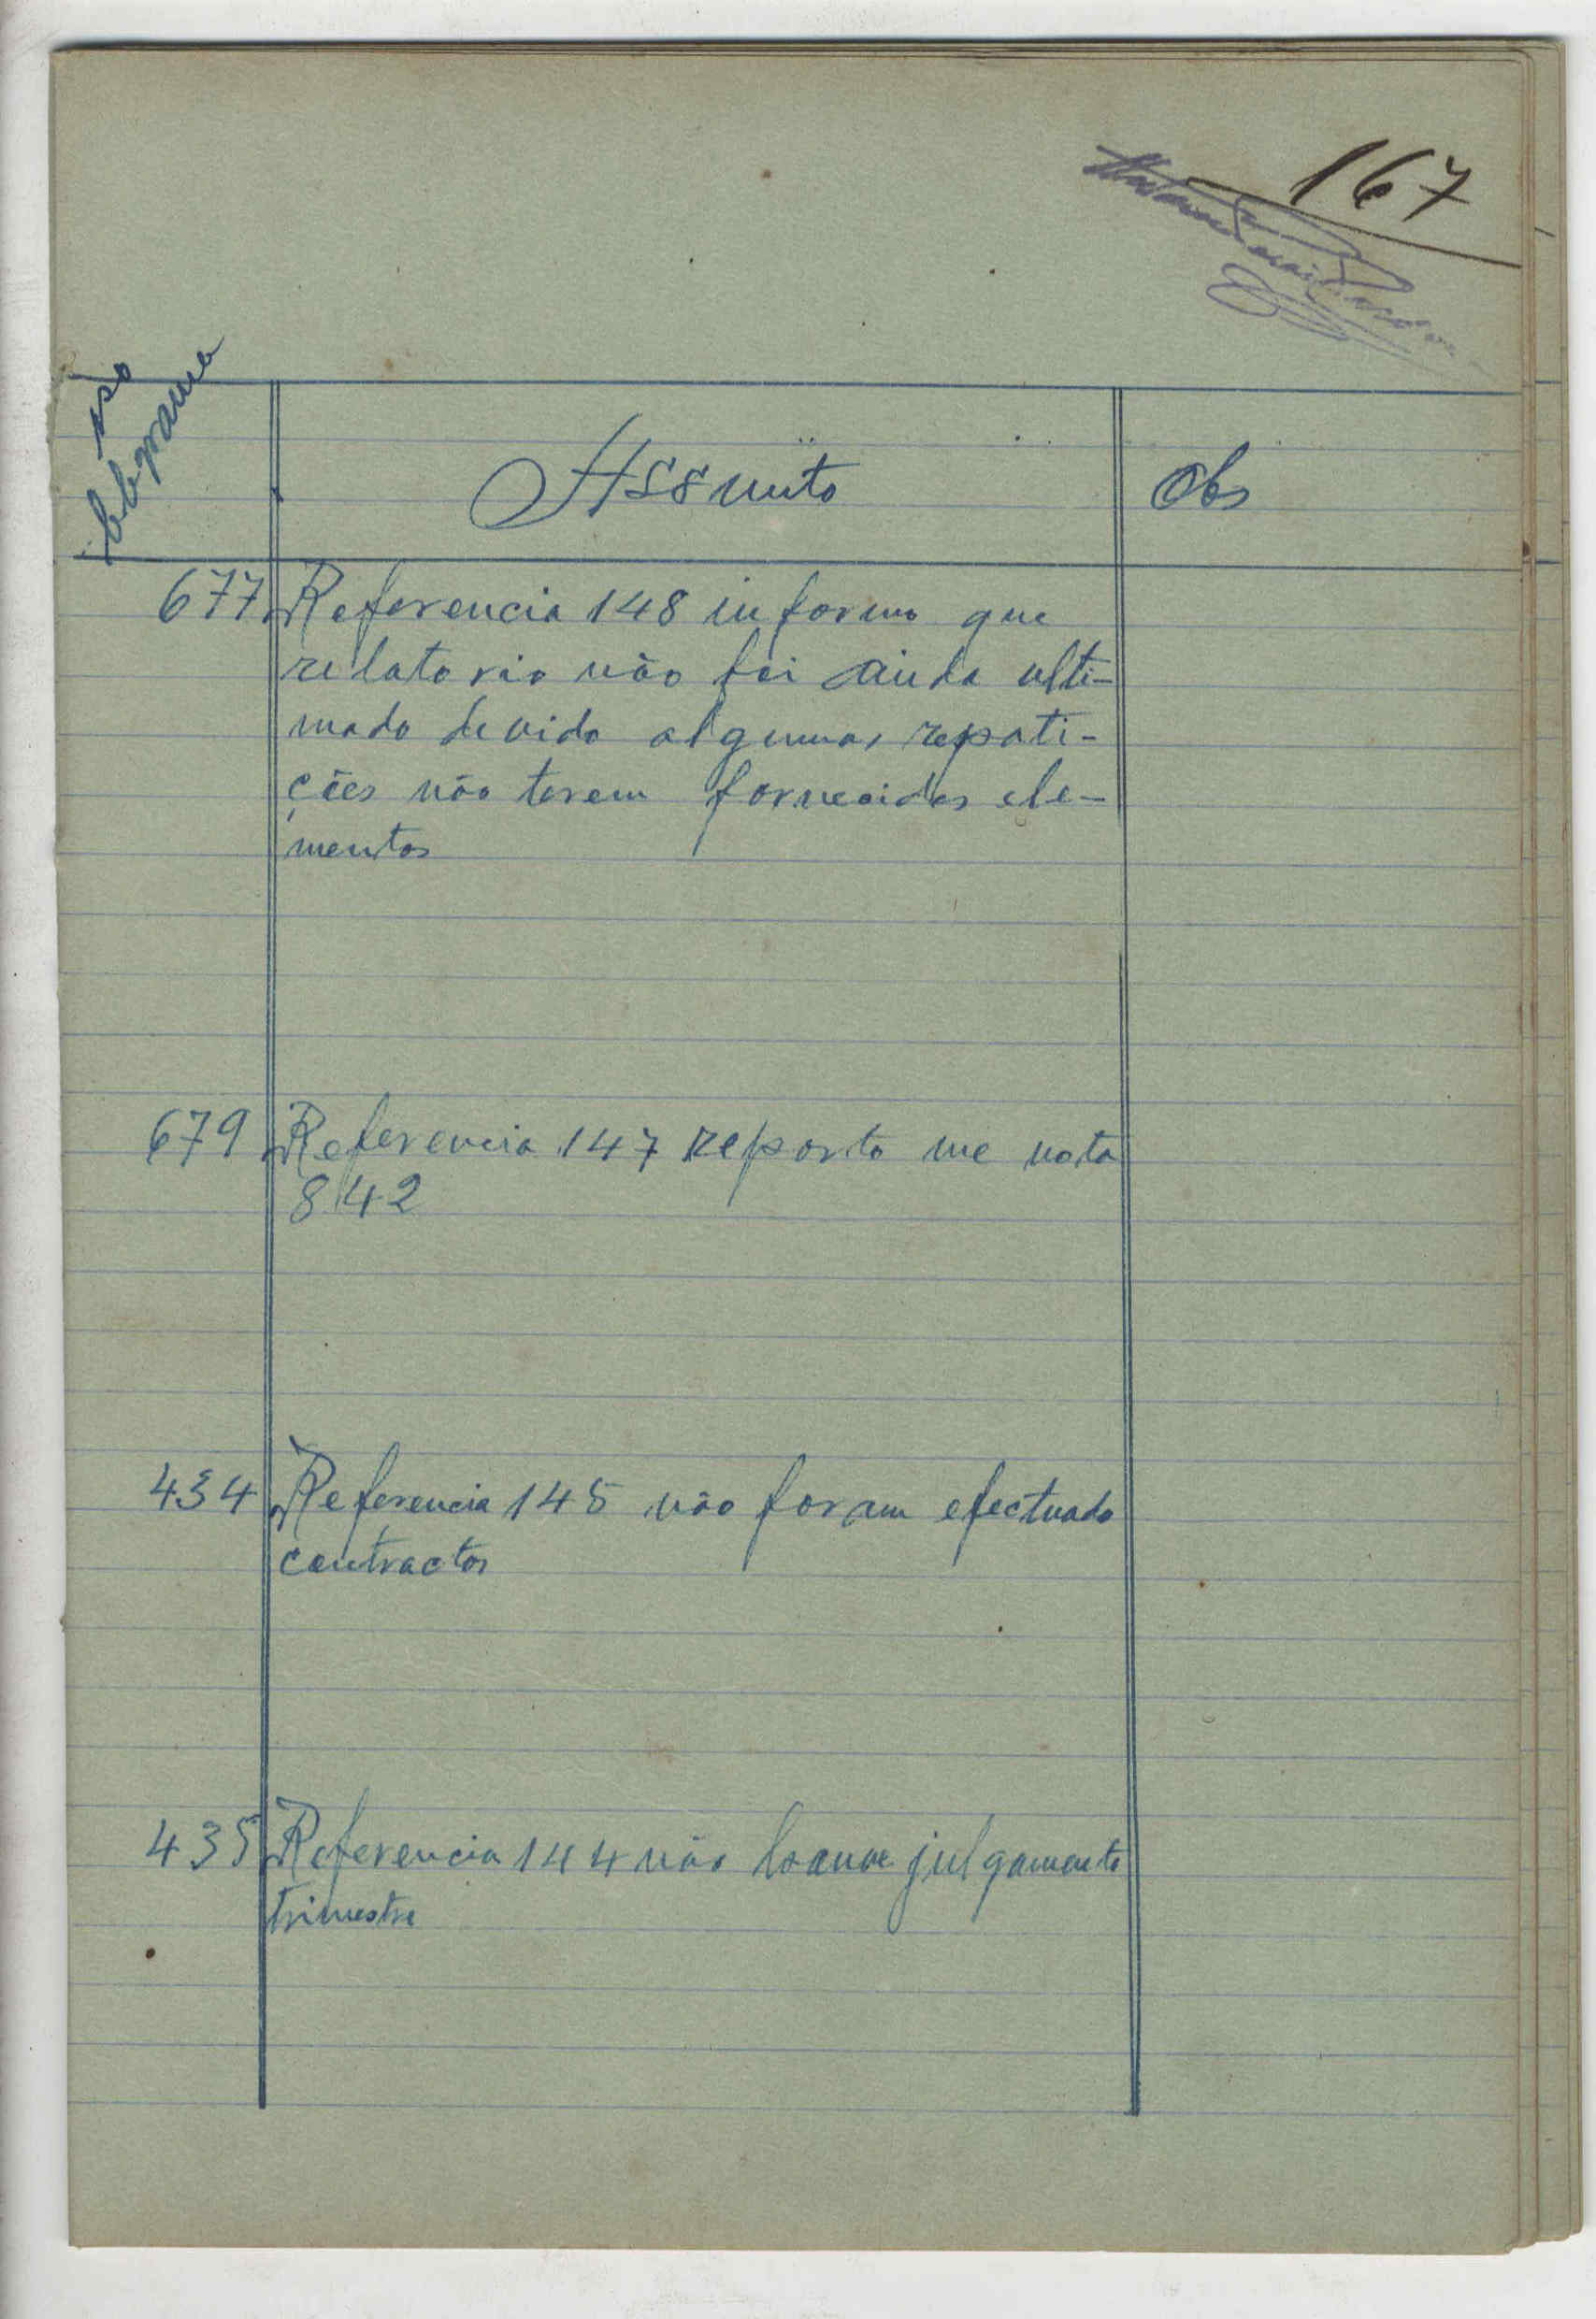 167
Assunto
Obs
677 Referencia 148 informo que
relatorio não foi ainda ulti-
mado devido algumas repati-
ções não terem fornecidos ele-
mentos
679 Referencia 147 reporto me nota
842
434 Referencia 145 não foram efectuado
contractos
435 Referencia 144 não julgamento
trimestre